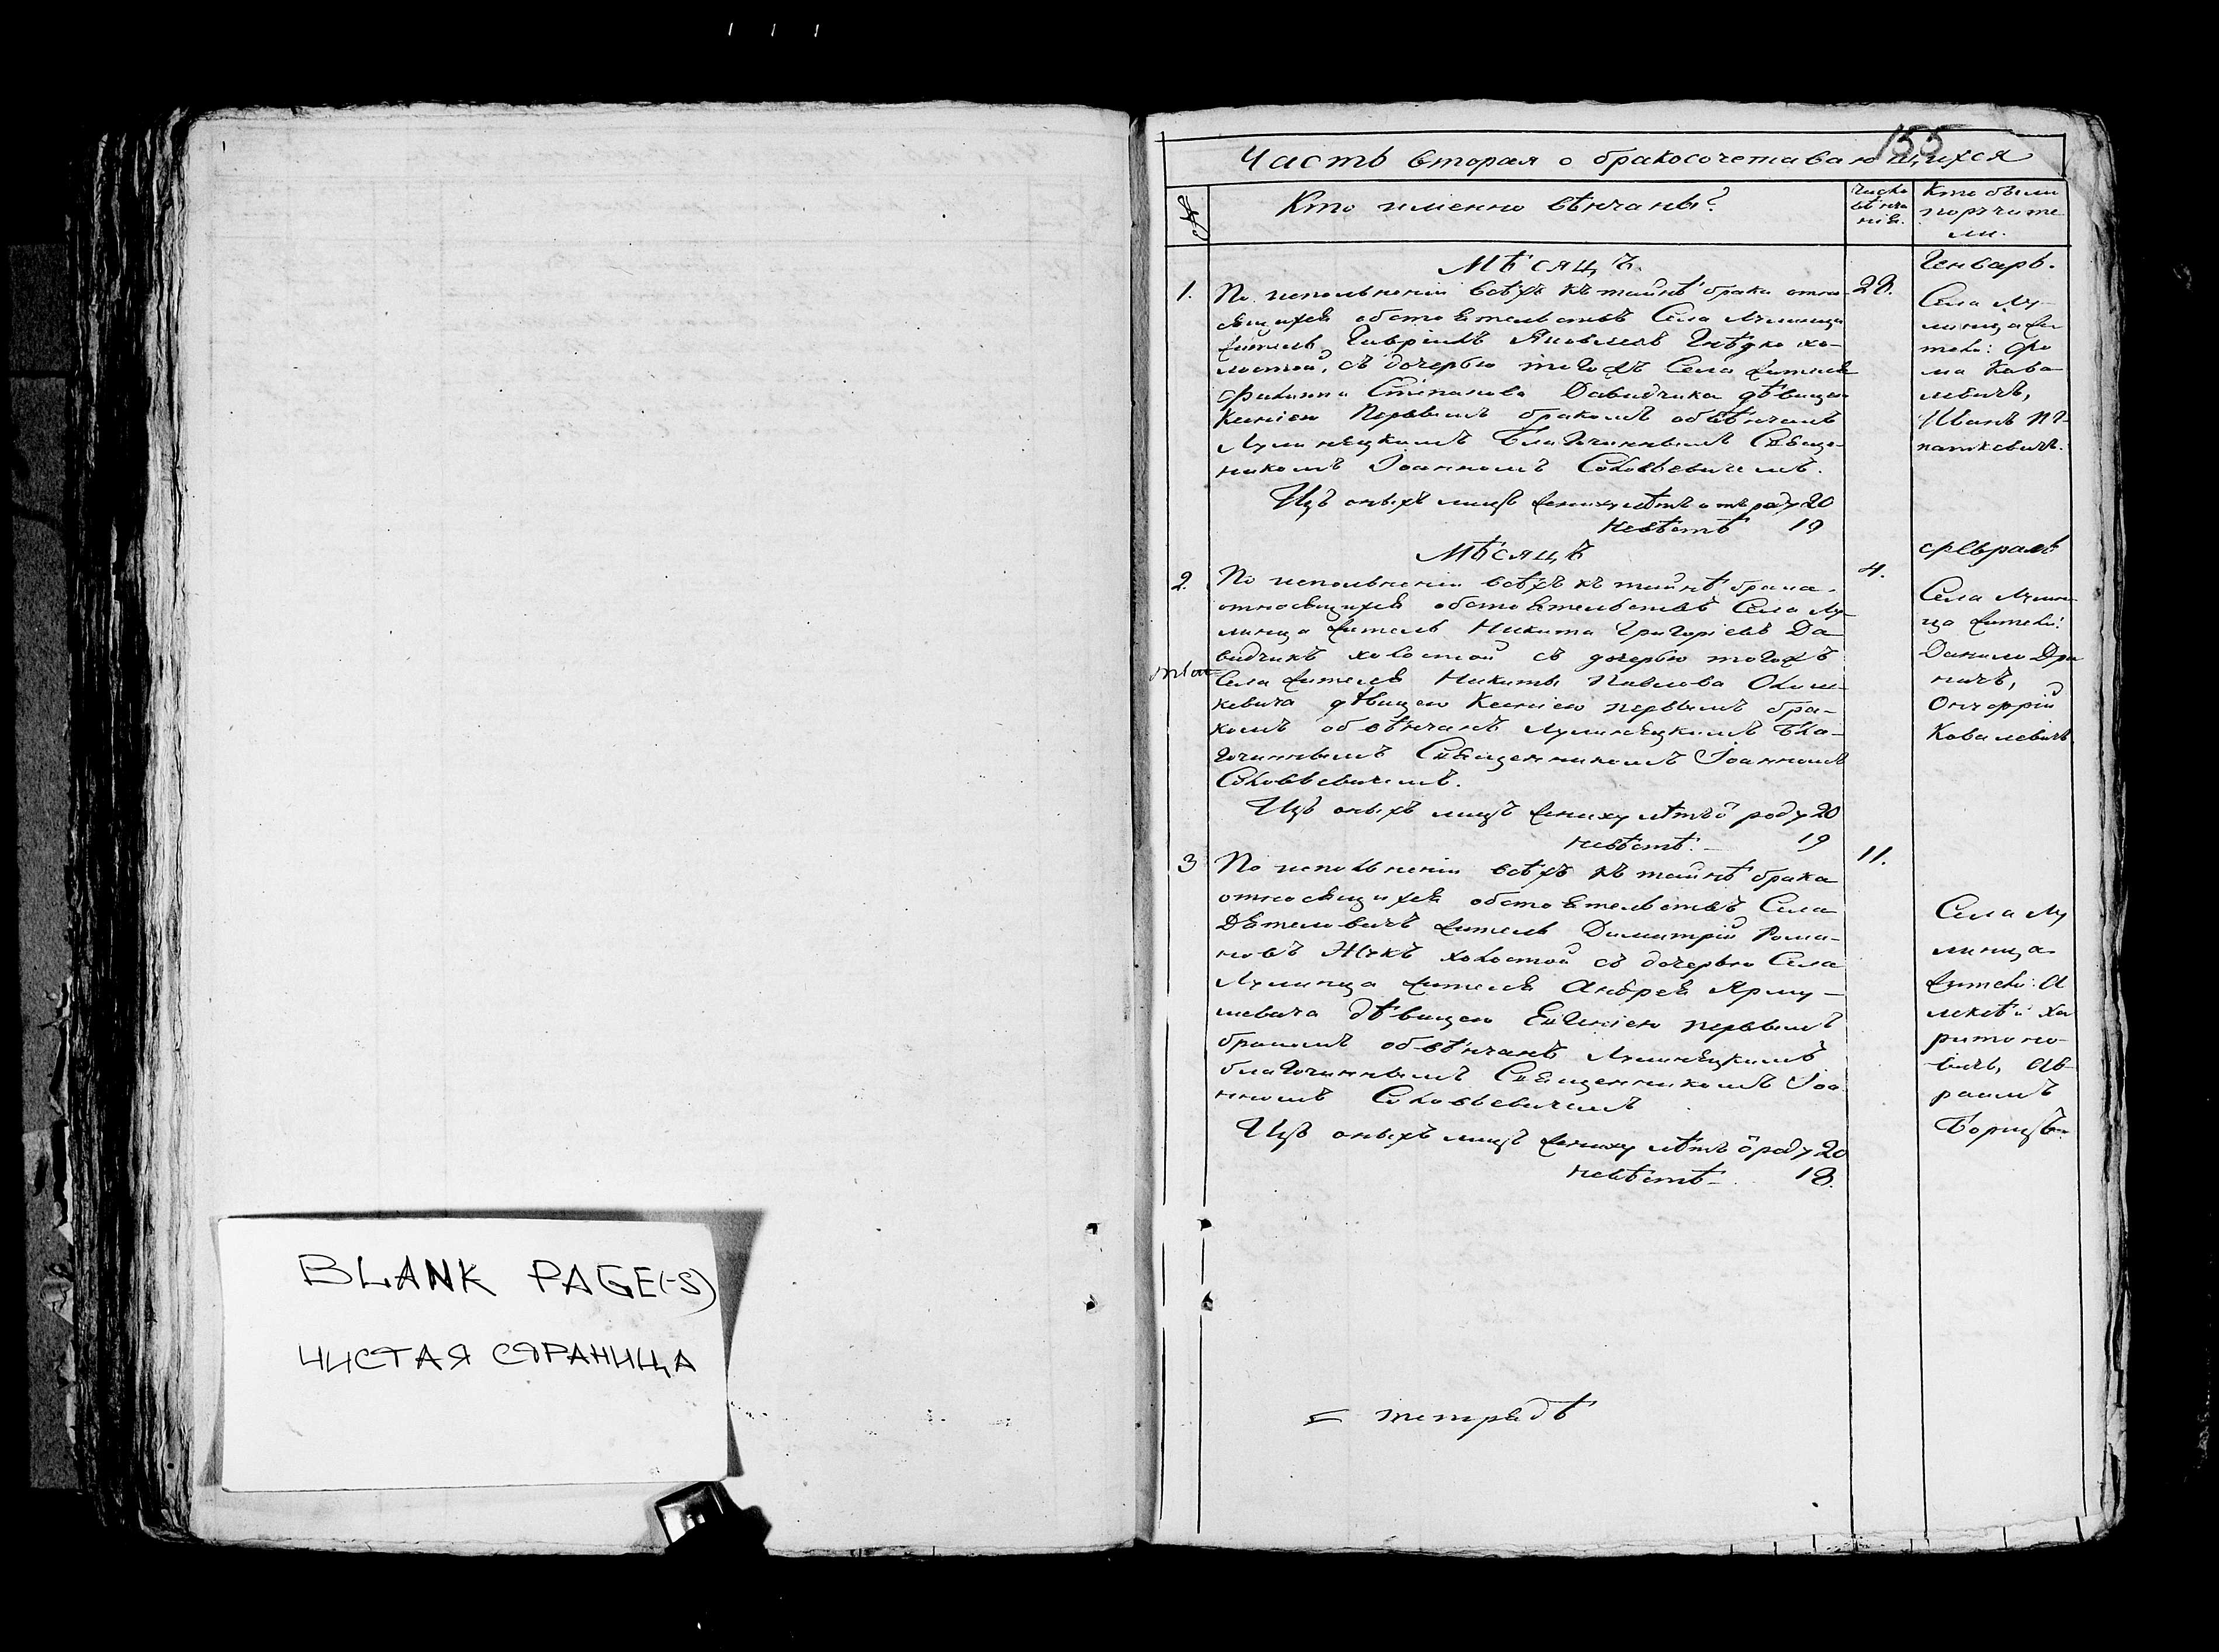 155
Часть вторая о бракосочетавающихся
№
Кто именно вѣнчаны?
Число вѣнчанія.
Кто были
поручите
ли.
Мѣсяцъ
Генварь.
1. По испольненіи всѣхъ къ тайнѣ брака отно-
сящихся обстоятельствъ Села Лулинца
житель Гавріилъ Яковлевъ Гнѣдко хо-
лостой, съ дочерью тогожъ Села жителя
Филиппа Степанова Давидчика дѣвицею
Ксеніею первымъ бракомъ обвѣнчанъ
Лулинецкимъ Благочиннымъ Священ-
никомъ Іоанномъ Соловьевичемъ.
Изъ оныхъ лицъ жениху лѣтъ отъ роду 20
невѣстѣ 19
28.
Села Лу-
линца жи
тели: Фо
ма Кова-
левичъ,
Иванъ
Мѣсяцъ
Февраль
2. По испольненіи всѣхъ къ тайнѣ брака
относящихся обстоятельствъ Села Лу-
линца житель Никита Григоріевъ Да-
видчикъ холостой съ дочерью тогожъ
Села жителя Никиты Павлова
дѣвицею Ксеніею первымъ бра-
комъ обвѣнчанъ Лулинецкимъ Бла-
гочиннымъ Священникомъ Іоанномъ
Соловьевичемъ.
Изъ оныхъ лицъ жениху лѣтъ ѿ роду 20
невѣстѣ. 19
4.
Села Лулин-
ца жители:
Данило
Онуфрій
Ковалевичъ
3 По испольненіи всѣхъ къ тайнѣ брака
относящихся обстоятельствъ Села
Дятеловичъ житель Димитрій Рома-
новъ Жукъ холостой съ дочерью Села
Лулинца жителя Андрея Ярму-
шевича дѣвицею Евгеніею первымъ
бракомъ обвѣнчанъ Лулинецкимъ
благочиннымъ Священникомъ Іоа-
нномъ Соловьевичемъ
Изъ оныхъ лицъ жениху лѣтъ ѿ роду 20
невѣстѣ 18.
11.
Села Лу
линца
жители: А
лексѣй Ха
ритоно-
вичъ, Ав-
раамъ
тетрядѣ
BLANK PAGE(-S)
ЧИСТАЯ СТРАНИЦА